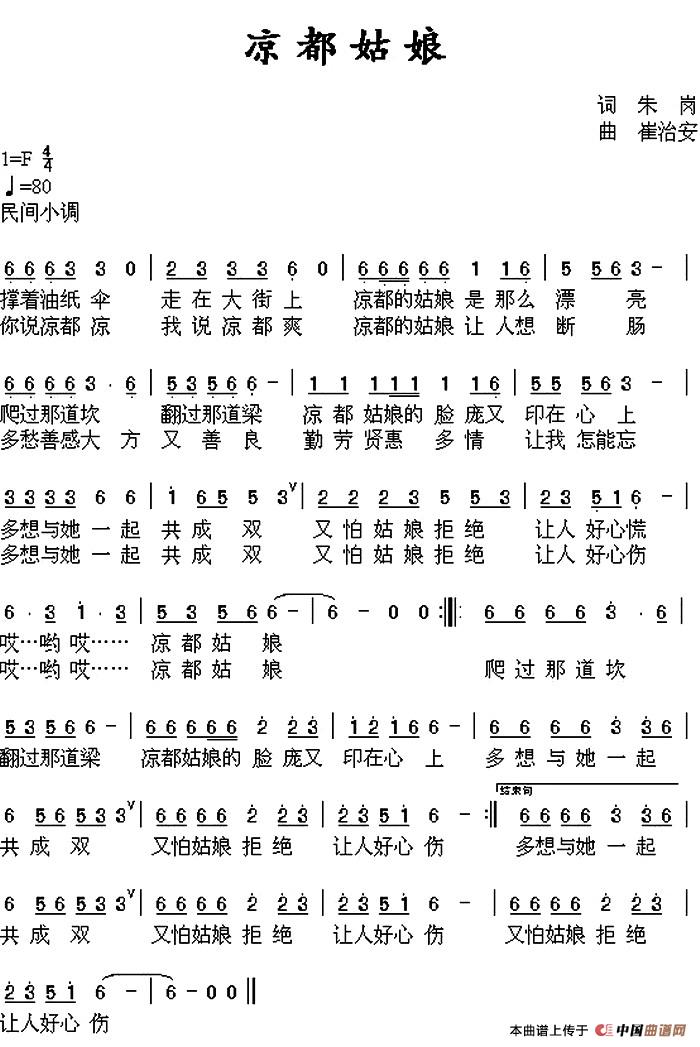 凉都姑娘
词 朱 岗
曲 崔治安
1=F 4/4
♩=80
民间小调
6 6 6 3 3 0 | 2 3 3 3 6 0 | 6 6 6 6 6 1 1 6 | 5 5 6 3 – |
撑着油纸 伞 走 在 大 街 上 凉都的姑娘 是 那 么 漂 亮
你说凉都 凉 我 说 凉 都 爽 凉都的姑娘 让 人想 断 肠
6 6 6 6 3 · 6 | 5 3 5 6 6 – | 1 1 1 1 1 1 1 6 | 5 5 5 6 3 – |
爬过那道坎 翻过那道梁 凉 都 姑娘的 脸 庞又 印在 心 上
多愁善感大 方 又 善 良 勤 劳 贤惠 多 情 让我 怎能忘
3 3 3 3 6 6 | 1 6 5 5 3 V | 2 2 2 3 5 5 3 | 2 3 5 1 6 – |
多想与她 一 起 共 成 双 又 怕 姑 娘 拒 绝 让人 好心慌
多想与她 一 起 共 成 双 又 怕 姑 娘 拒 绝 让人 好心伤
6 · 3 1 · 3 | 5 3 5 6 6 – | 6 – 0 0 :‖: 6 6 6 6 3 · 6 |
哎…哟 哎…… 凉 都 姑 娘
哎…哟 哎…… 凉 都 姑 娘 爬 过 那 道 坎
5 3 5 6 6 – | 6 6 6 6 6 2 2 3 | 1 2 1 6 6 – | 6 6 6 6 3 3 6 |
翻过那道梁 凉都姑娘的 脸 庞又 印在心 上 多 想 与 她 一 起
结束句
6 5 6 5 3 3 V | 6 6 6 6 2 2 3 | 2 3 5 1 6 – :‖ 6 6 6 6 3 3 6 |
共 成 双 又怕姑娘 拒 绝 让人好心 伤 多想与她 一 起
6 5 6 5 3 3 V | 6 6 6 6 2 2 3 | 2 3 5 1 6 – | 6 6 6 6 2 2 3 |
共 成 双 又怕姑娘 拒 绝 让人好心 伤 又怕姑娘 拒 绝
2 3 5 1 6 – | 6 – 0 0 ‖
让人好心 伤
本曲谱上传于 中国曲谱网